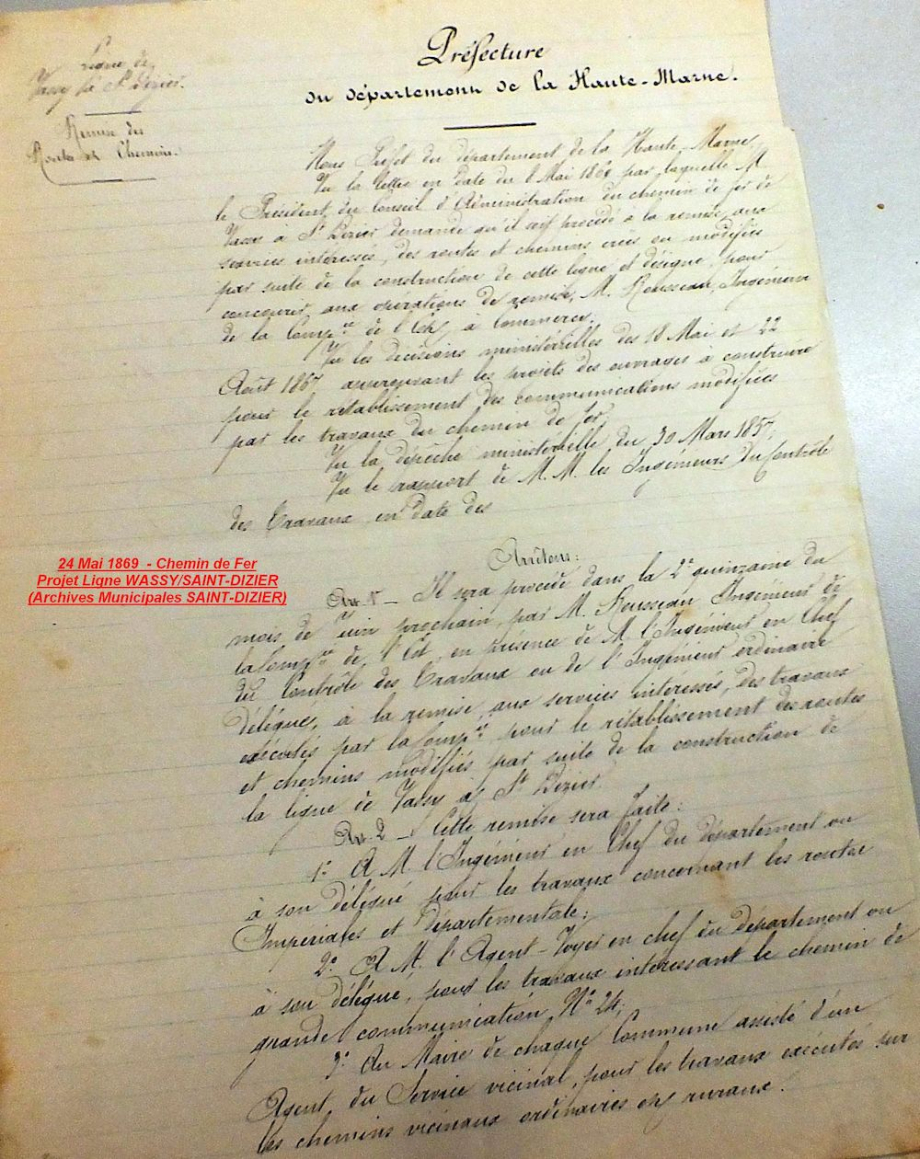 Ligne de
Vassy à St Dizier.
Remise des
Routes et Chemins.
Préfecture
du département de la Haute-Marne.
Nous Préfet du département de la Haute-Marne,
Vu la lettre en date du 8 Mai 1869 par laquelle M.
le Président du Conseil d'Administration du chemin de fer de
Vassy à St Dizier demande qu'il soit procédé à la remise, aux
services intéressés, des routes et chemins créés ou modifiés
par suite de la construction de cette ligne et désigne pour
concourir aux opérations de remise, M. Rousseau, Ingénieur
de la Compie de l'Est, à Commercy;
Vu les décisions ministérielles des 18 Mai et 22
Août 1867 approuvant les projets des ouvrages à construire
pour le rétablissement des communications modifiées
par les travaux du chemin de fer;
Vu la dépêche ministérielle du 30 Mars 1857,
Vu le rapport de M.M. les Ingénieurs du Contrôle
des Travaux en date des
Arrêtons:
24 Mai 1869 - Chemin de Fer
Projet Ligne WASSY/SAINT-DIZIER
(Archives Municipales SAINT-DIZIER)
Art. 1er _ Il sera procédé dans la 2e quinzaine du
mois de Juin prochain, par M. Rousseau Ingénieur de
la Compie de l'Est, en présence de M. l'Ingénieur en Chef
du Contrôle des Travaux ou de l'Ingénieur ordinaire
délégué, à la remise, aux services intéressés, des travaux
exécutés par la Compie pour le rétablissement des routes
et chemins modifiés par suite de la construction de
la ligne de Vassy à St Dizier.
Art. 2 _ Cette remise sera faite:
1° A M. l'Ingénieur en Chef du département ou
à son délégué pour les travaux concernant les routes
Impériales et départementale;
2° A M. l'Agent-Voyer en chef du département ou
à son délégué, pour les travaux intéressant le chemin de
grande communication N° 24;
3° Au Maire de chaque Commune assisté d'un
Agent du Service vicinal, pour les travaux exécutés sur
les chemins vicinaux ordinaires et ruraux.